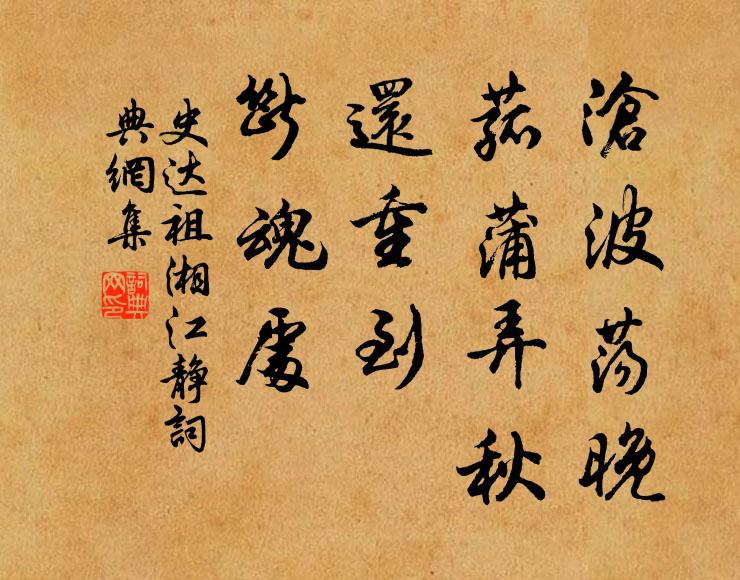 滄波荡晚
菰蒲弄秋
還重到
斷魂處
史达祖湘江静詞
典網集
詞典网印